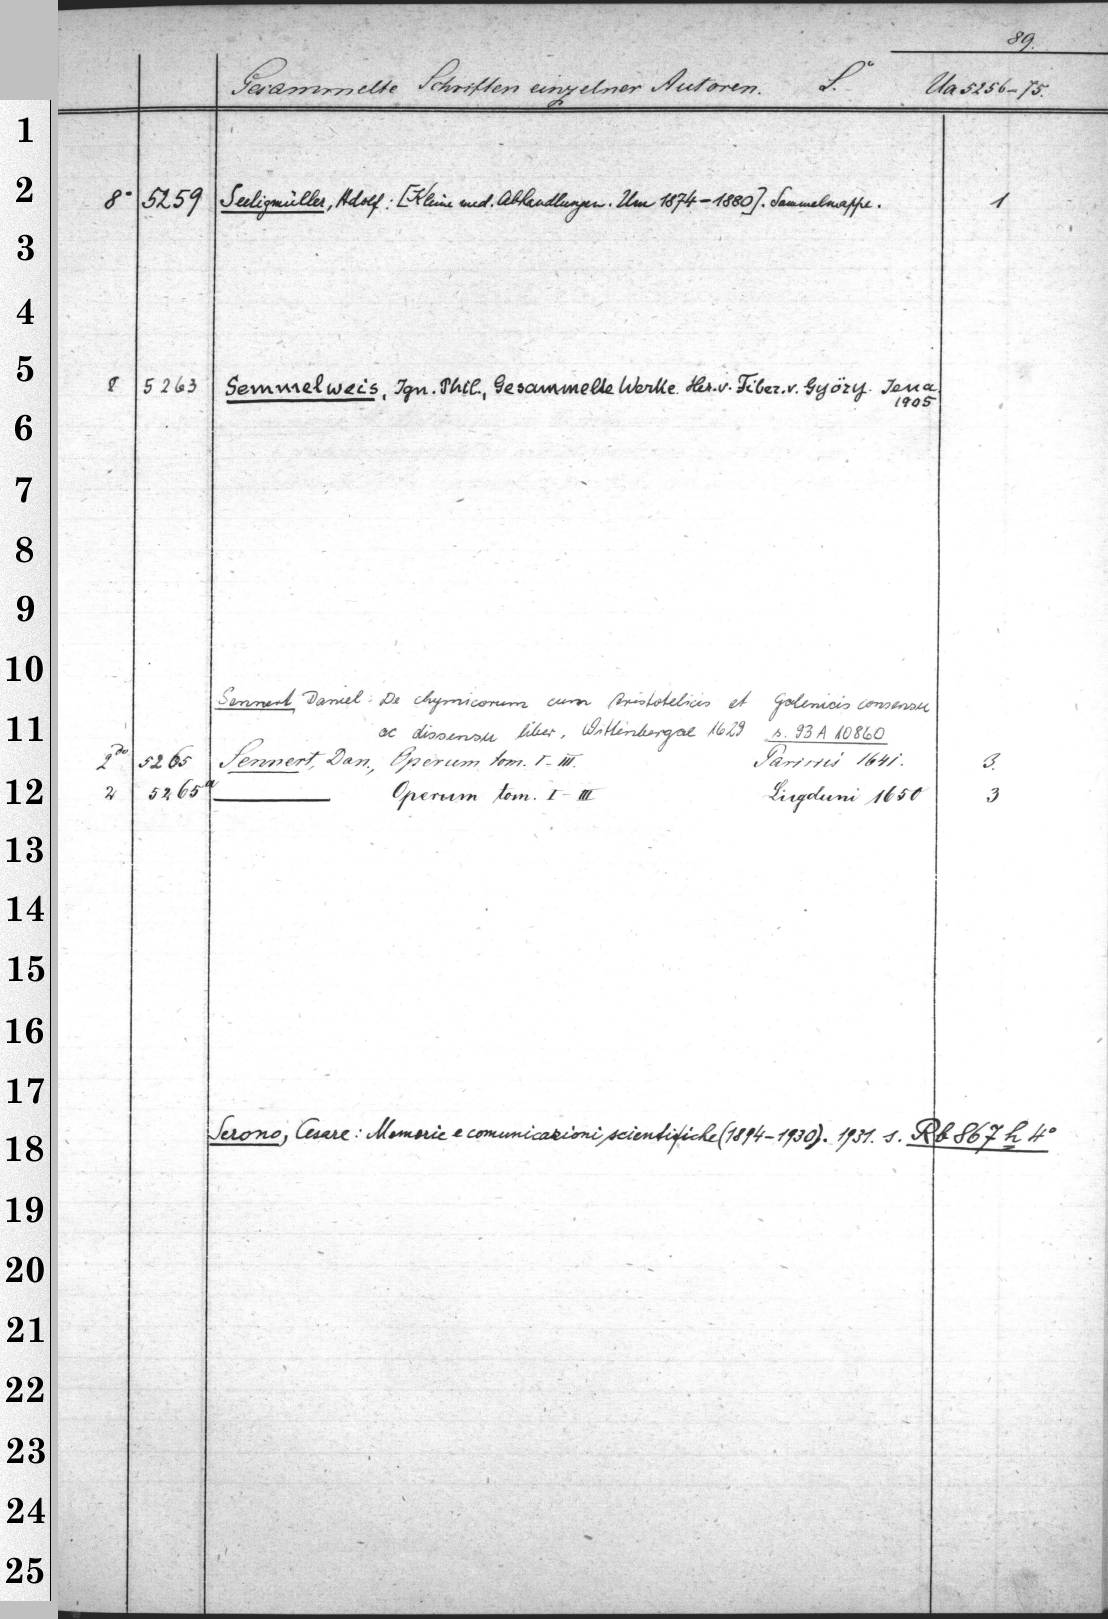 89.
Gesammelte Schriften einzelner Autoren. S. Ua 5256-75.
1
2
8° 5259 Seeligmüller, Adolf: [Kleine med. Abhandlungen. Um 1874-1880]. Sammelmappe. 1
3
4
5
8 5263 Semmelweis, Ign. Phil., Gesammelte Werke. Her. v. Tiber. v. Györy. Jena
1905
6
7
8
9
10
Sennert, Daniel: De chymicorum cum Aristotelicis et Galenicis consensu
11
ac dissensu liber, Wittenbergae 1629 s. 93 A 10860
2do 5265 Sennert, Dan., Operum tom. I-III. Parisiis 1641. 3.
12
2 5265a ——— Operum tom. I-III Lugduni 1650 3
13
14
15
16
17
Serono, Cesare: Memorie e comunicazioni scientifiche (1894-1930). 1931. s. Rb 867 h 4°
18
19
20
21
22
23
24
25